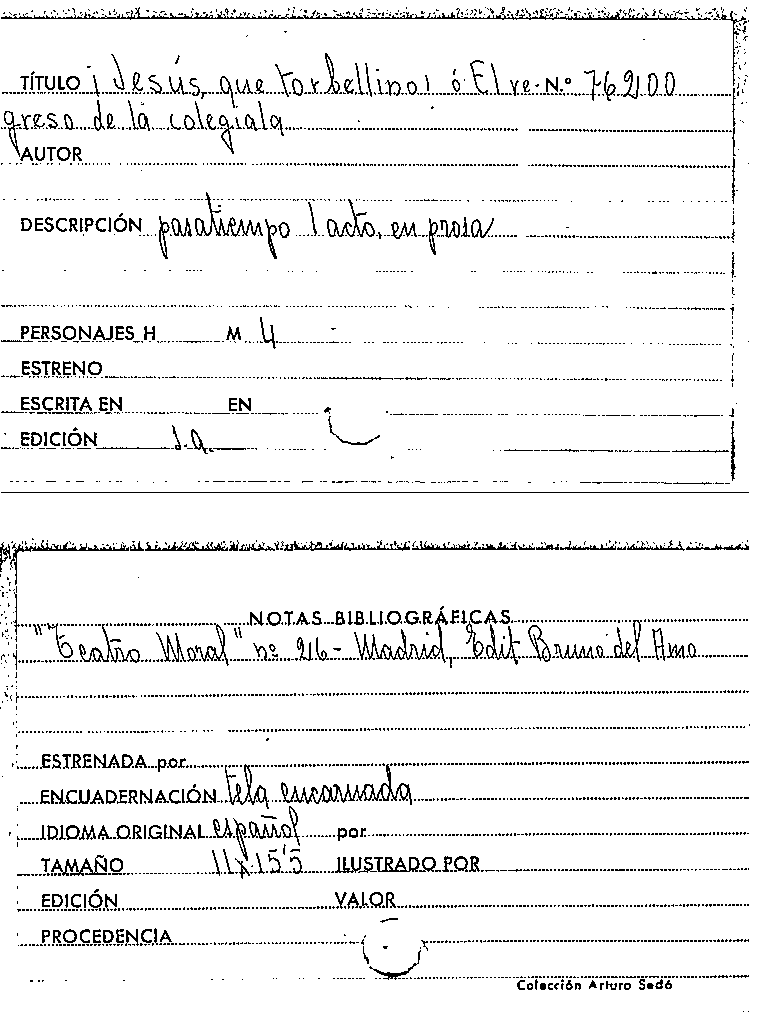 TÍTULO ¡Jesús, que torbellino! ó El re- N.º 76200
greso de la colegiala
AUTOR
DESCRIPCIÓN pasatiempo 1 acto, en prosa
PERSONAJES H M 4
ESTRENO
ESCRITA EN EN
EDICIÓN s.a.
NOTAS BIBLIOGRÁFICAS
"Teatro Moral" nº 216 - Madrid, Edit Bruno del Amo
ESTRENADA por
ENCUADERNACIÓN tela encarnada
IDIOMA ORIGINAL español por
TAMAÑO 11x15'5 ILUSTRADO POR
EDICIÓN VALOR
PROCEDENCIA
Colección Arturo Sedó